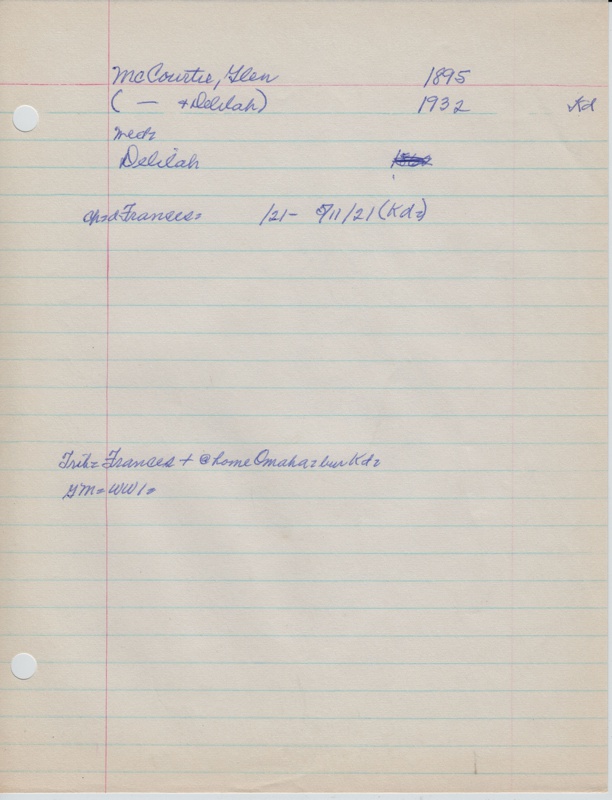 McCourtie, Glen 1895
( — + Delilah) 1932 Kd
wed=
Delilah
ch=d Frances= /21- 5/11/21 (Kd=)
Trib= Frances + @ home Omaha= bur Kd=
GM= WW1=